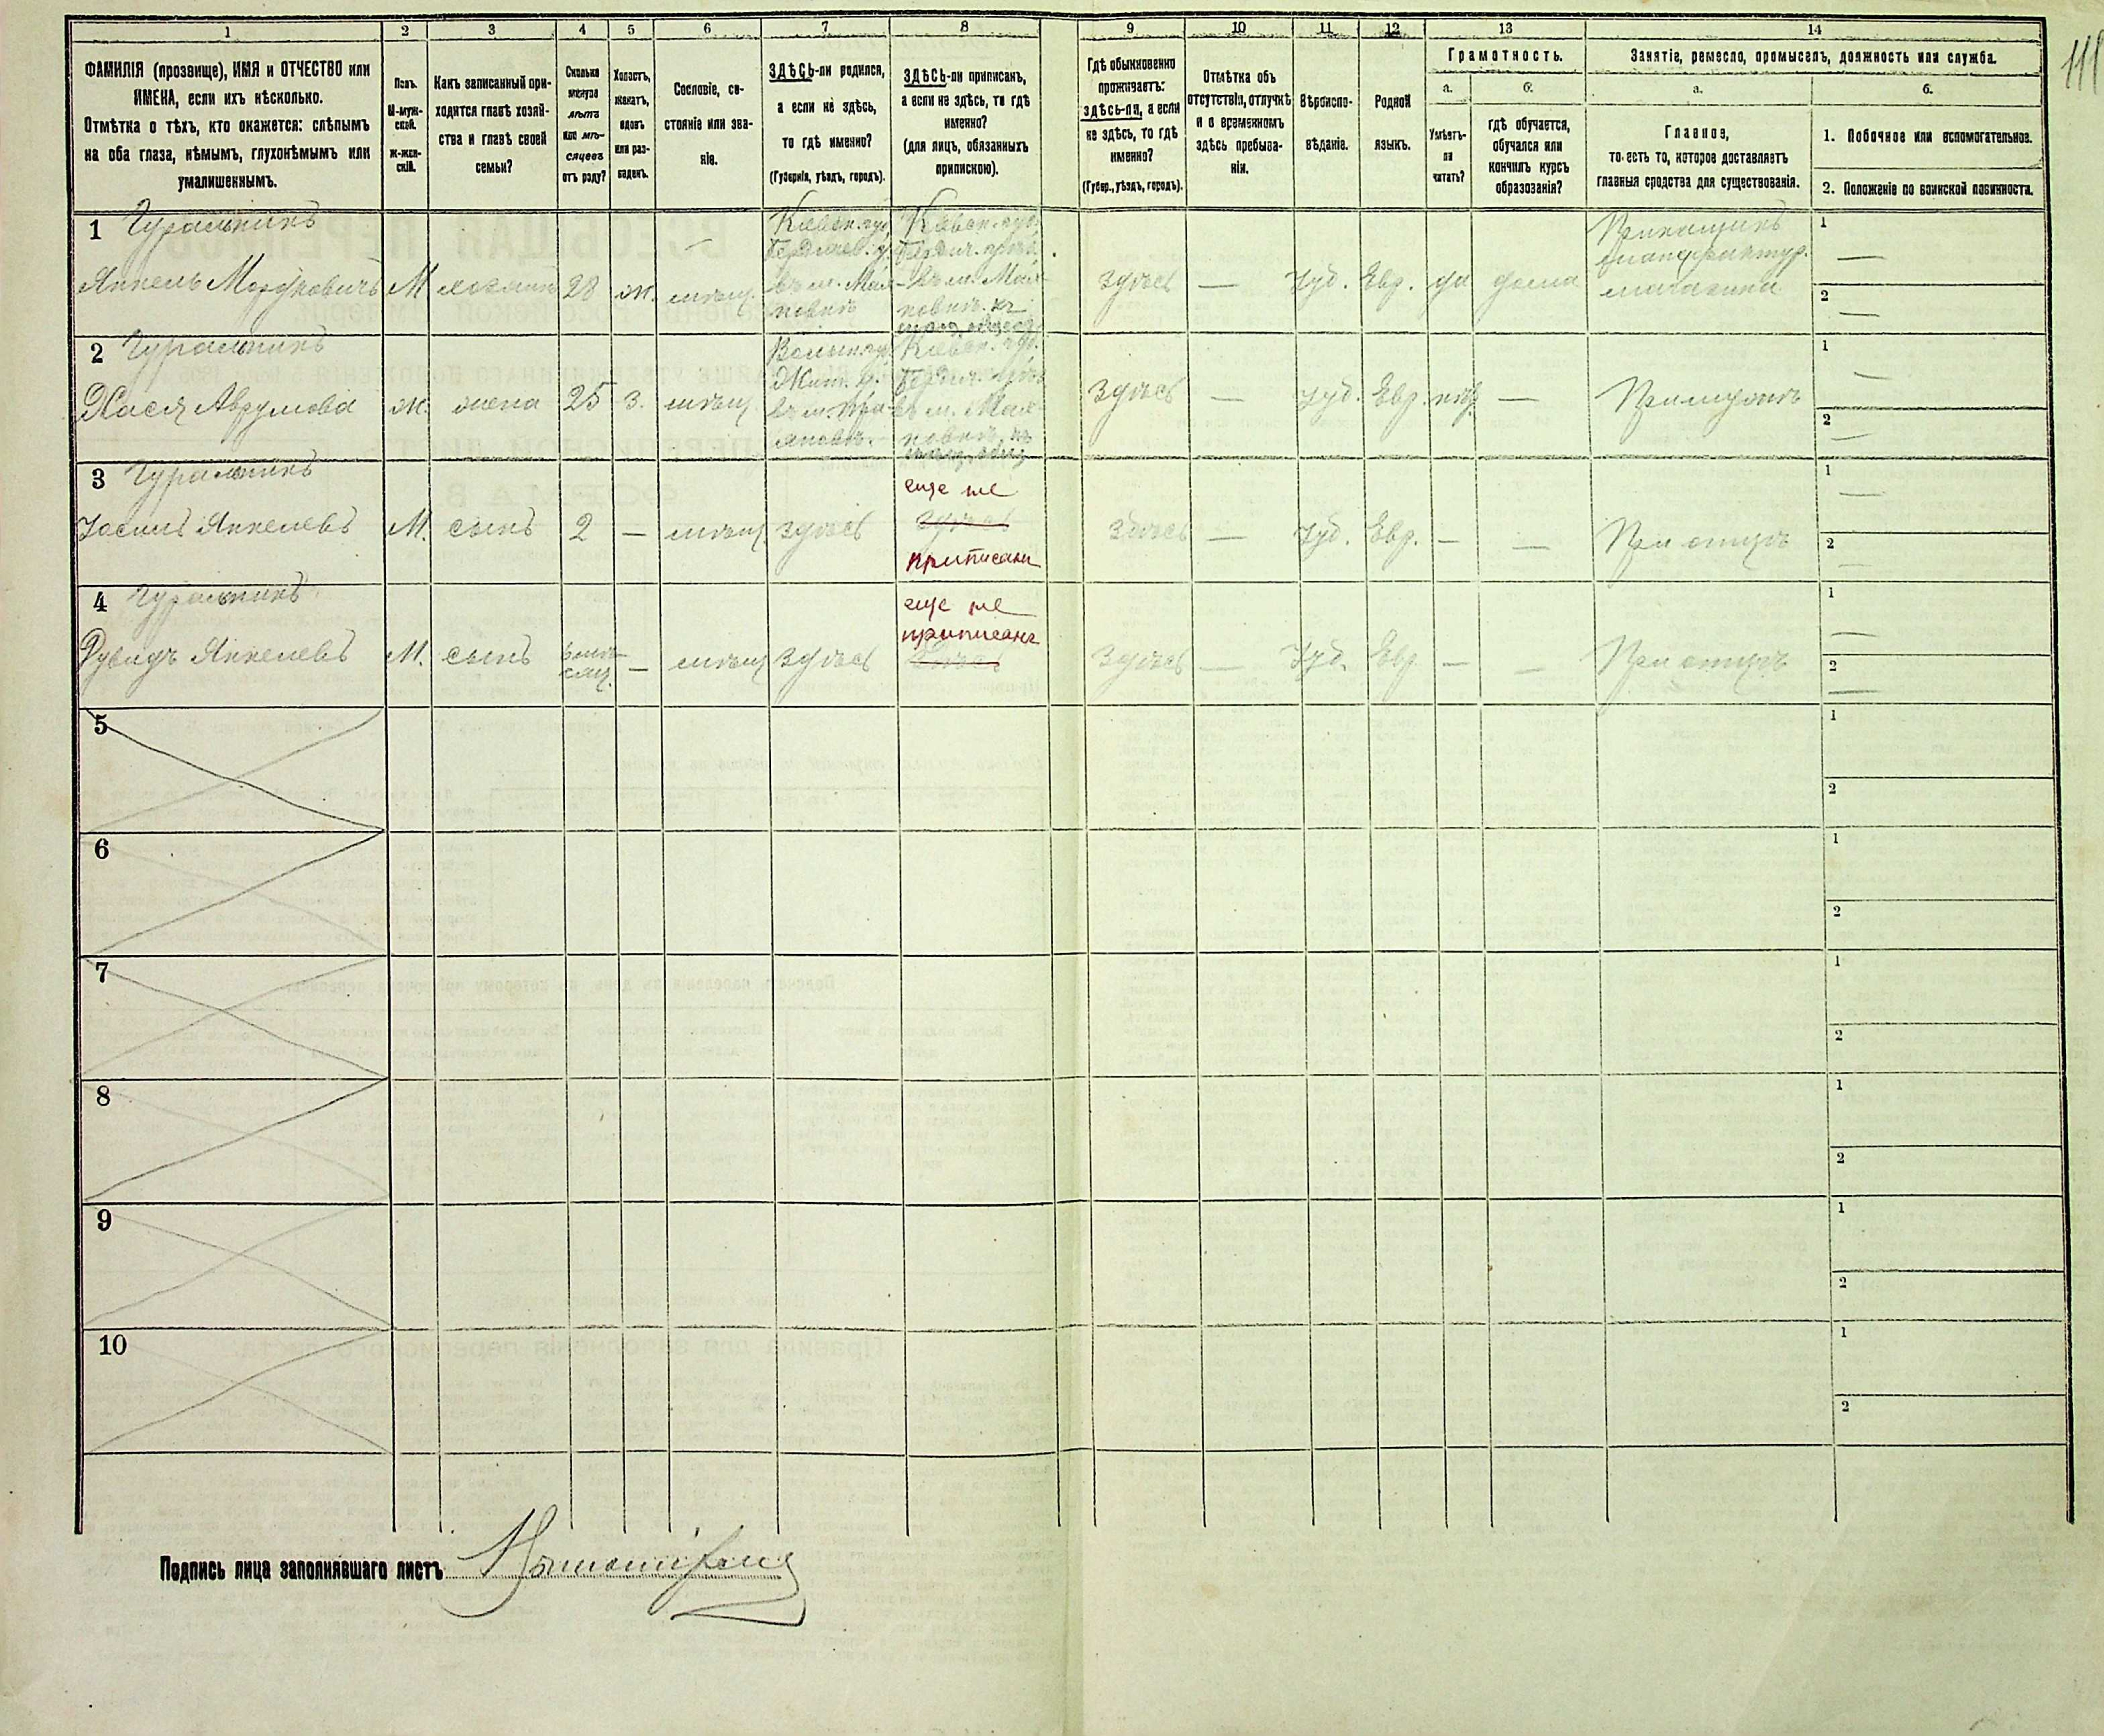 1 2 3 4 5 6 7 8 9 10 11 12 13 14
111
ФАМИЛІЯ (прозвище), ИМЯ и ОТЧЕСТВО или
ИМЕНА, если ихъ нѣсколько.
Отмѣтка о тѣхъ, кто окажется: слѣпымъ
на оба глаза, нѣмымъ, глухонѣмымъ или
умалишеннымъ.
Полъ.
М-муж-
ской.
Ж-жен-
скій.
Какъ записанный при-
ходится главѣ хозяй-
ства и главѣ своей
семьи?
Сколько
минуло
лѣтъ
или мѣ-
сяцевъ
отъ роду?
Холостъ,
женатъ,
вдовъ
или раз-
веденъ.
Сословіе, со-
стояніе или зва-
ніе.
ЗДѢСЬ-ли родился,
а если не здѣсь,
то гдѣ именно?
(Губернія, уѣздъ, городъ).
ЗДѢСЬ-ли приписанъ,
а если не здѣсь, то гдѣ
именно?
(для лицъ, обязанныхъ
припискою).
Гдѣ обыкновенно
проживаетъ:
здѣсь-ли, а если
не здѣсь, то гдѣ
именно?
(Губер., уѣздъ, городъ).
Отмѣтка объ
отсутствіи, отлучкѣ
и о временномъ
здѣсь пребыва-
ніи.
Вѣроиспо-
вѣданіе.
Родной
языкъ.
Грамотность.
а.
Умѣетъ-
ли
читать?
б.
гдѣ обучается,
обучался или
кончилъ курсъ
образованія?
Занятіе, ремесло, промыселъ, должность или служба.
а.
Главное,
то есть то, которое доставляетъ
главныя средства для существованія.
б.
1. Побочное или вспомогательное.
2. Положеніе по воинской повинности.
1 Гуральникъ
Янкель Мордковичъ М хозяинъ 28 ж. мѣщ.
Кіевск. губ.
Бердичев. у.
въ м. Мах-
новкѣ
Кіевск. губ.
Бердич. уѣзд.
въ м. Мах-
новкѣ. къ
мѣщ. общест.
здѣсь — Іуд. Евр. да дома
Прикащикъ
мануфактур.
магазина
1 —
2 —
2 Гуральникъ
Хася Аврумова ж. жена 25 з. мѣщ.
Волын. гу.
Жит. у.
Кіевск. губ.
Бердич. уѣзд
въ м. Мах-
новкѣ, къ
мѣщ. общ
Здѣсь — Іуд. Евр. нѣт — При мужѣ
1 —
2 —
3 Гуральникъ
Іосипъ Янкелевъ М. сынъ 2 — мѣщ здѣсь
еще не
здѣсь
приписанъ
Здѣсь — Іуд. Евр. — — При отцѣ
1 —
2 —
4 Гуральникъ
Дувидъ Янкелевъ М. сынъ — мѣщ здѣсь
еще не
приписанъ
здѣсь
Здѣсь — Іуд. Евр — — При отцѣ
1 —
2 —
5 1
2
6 1
2
7 1
2
8 1
2
9 1
2
10 1
2
Подпись лица заполнявшаго листъ